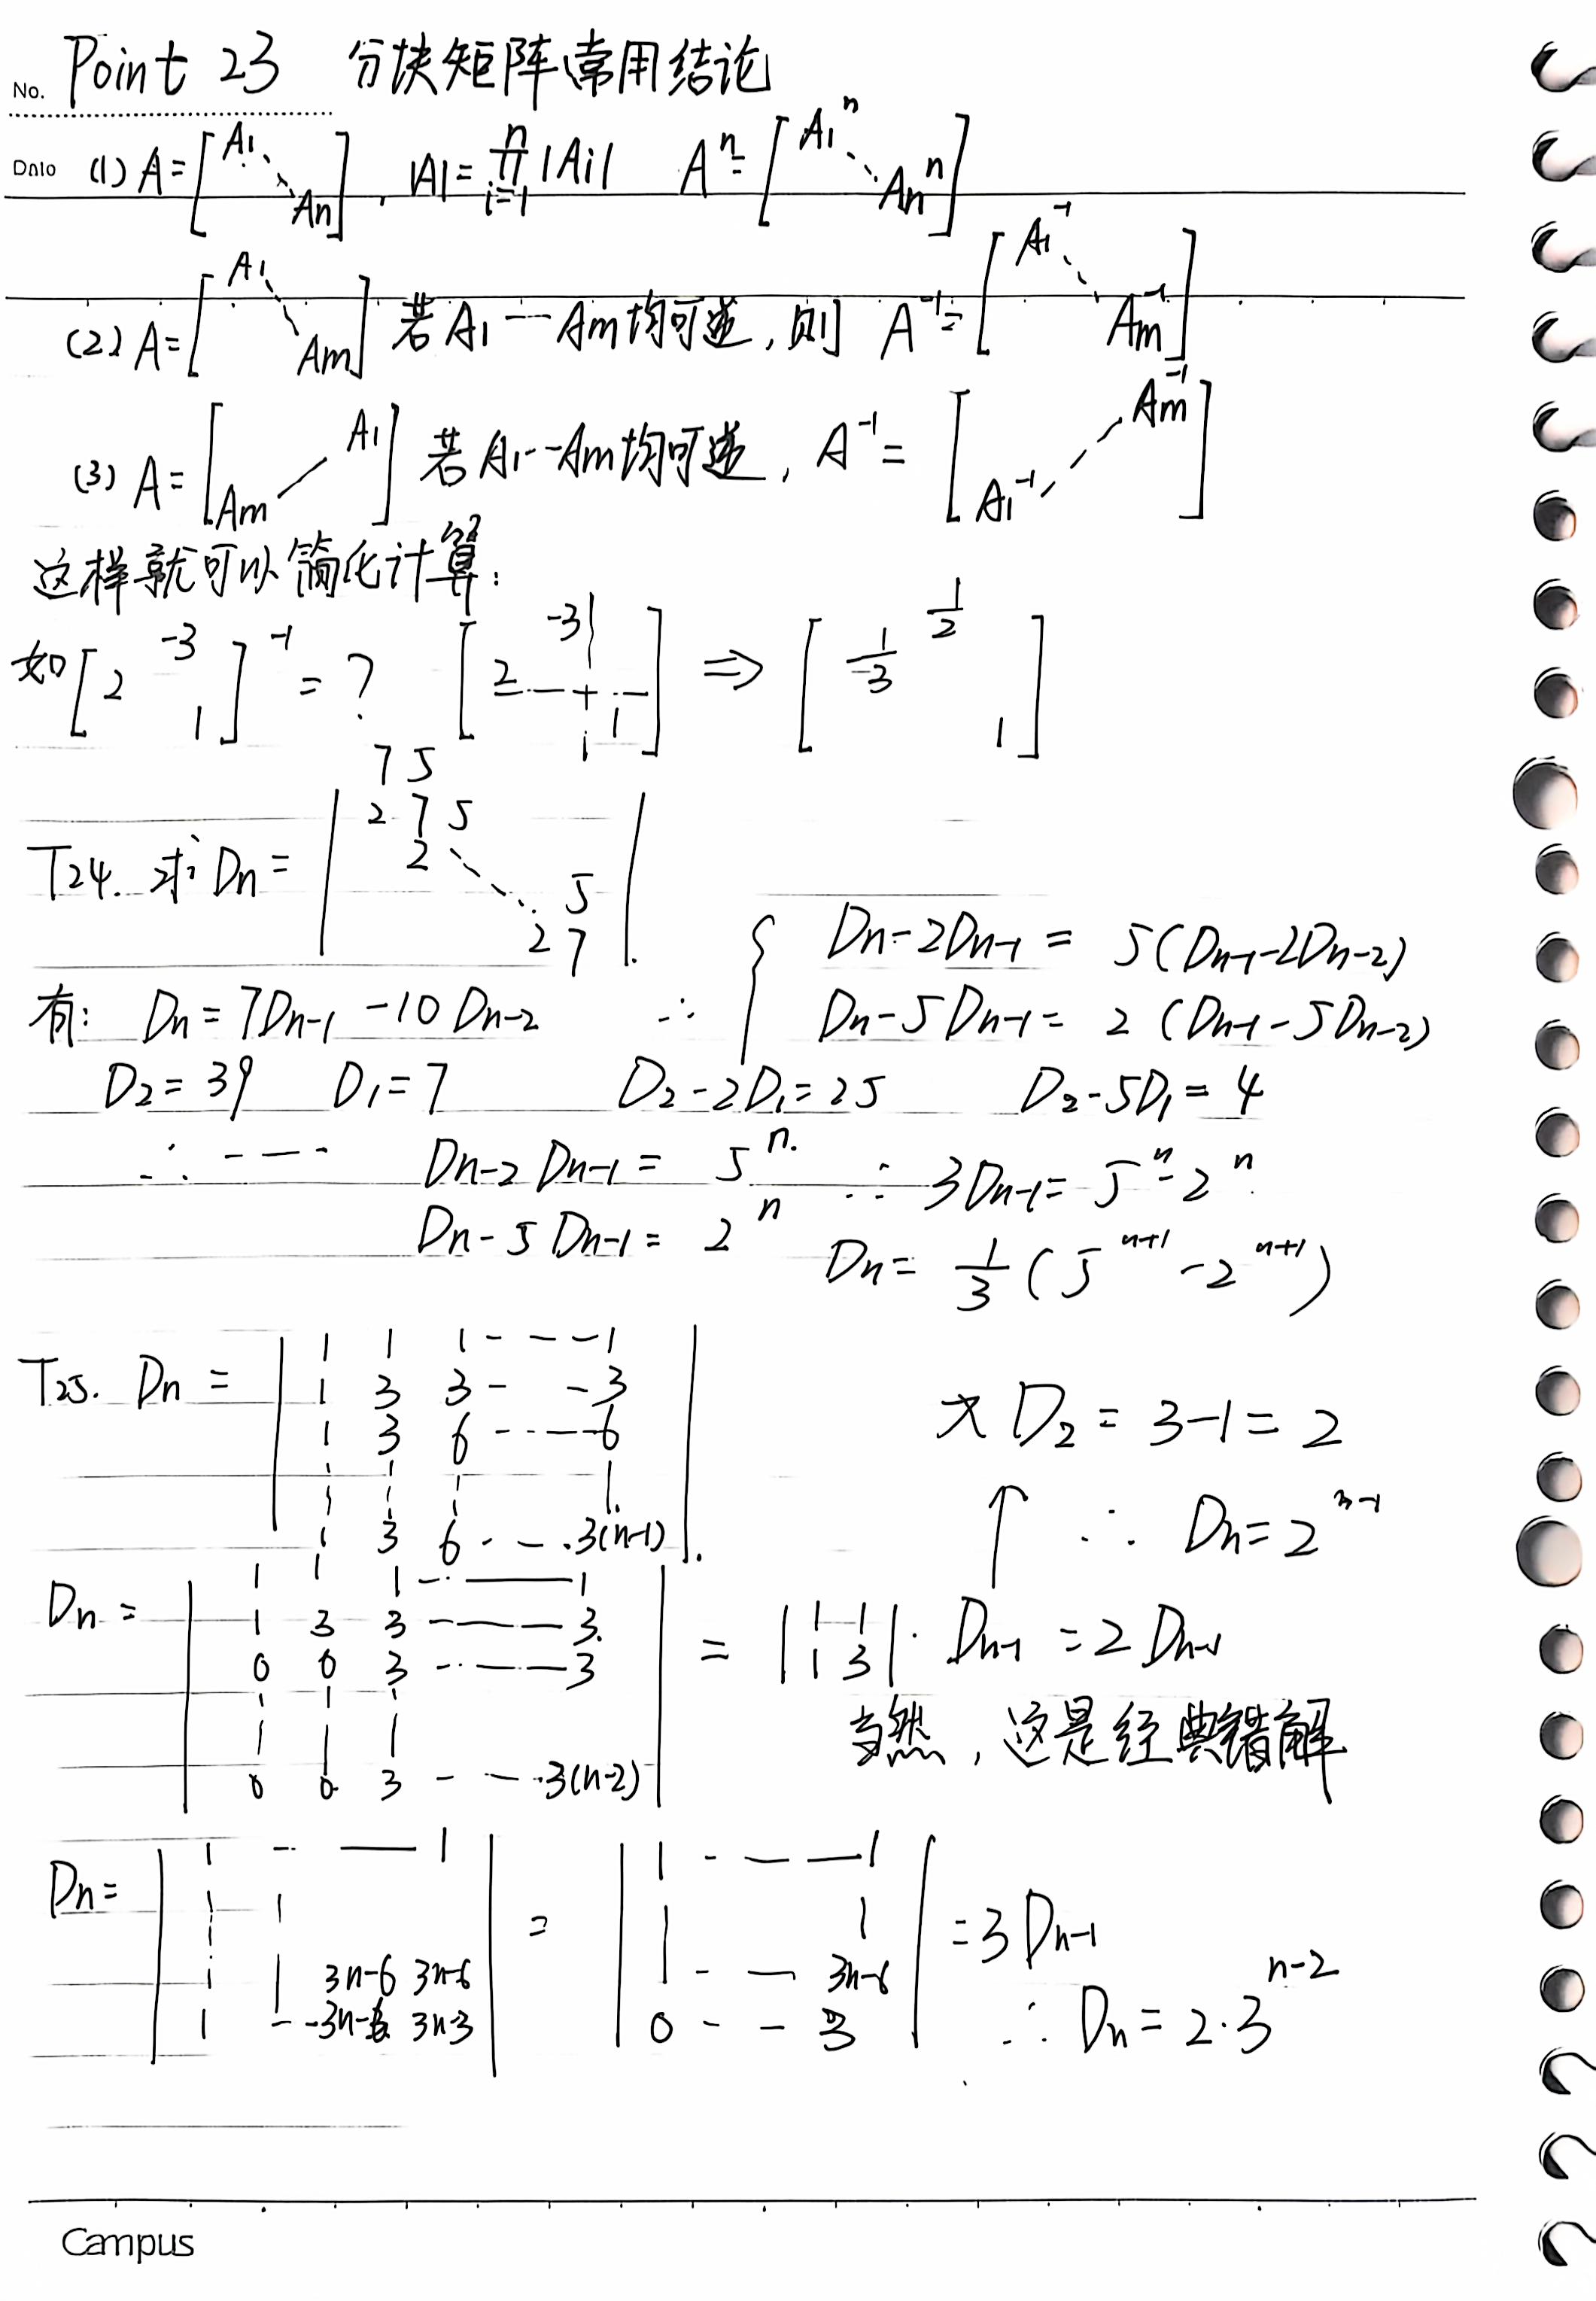 No. Point 23 分块矩阵常用结论
Date (1) A=[A1 ⋱ An], |A|=∏_{i=1}^{n}|Ai| A^n=[A1^n ⋱ An^n]
(2) A=[A1 ⋱ Am] 若A1---Am均可逆,则 A^-1=[A1^-1 ⋱ Am^-1]
(3) A=[Am / A1] 若A1--Am均可逆, A^-1=[A1^-1 ⋰ Am^-1]
这样就可以简化计算:
如[2 -3 1]^-1=? [2 -3 1] ⇒ [1/-3 1/2 1]
7 5
2 7 5
2 ⋱
T24. 求Dn=
5
2 7 .
Dn-2Dn-1= 5(Dn-1-2Dn-2)
有: Dn=7Dn-1-10Dn-2 ∴ Dn-5Dn-1= 2(Dn-1-5Dn-2)
D2=39 D1=7 D2-2D1=25 D2-5D1=4
∴---- Dn-2Dn-1= 5^n. ∴ 3Dn-1=5^n-2^n.
Dn-5Dn-1= 2^n Dn=1/3(5^{n+1}-2^{n+1})
1 1 1----1
T25. Dn= 1 3 3- -3
1 3 6----6
又D2=3-1=2
1 3 6- - .3(n-1) .
↑ ∴ Dn=2^{n-1}
1 1 1----1
Dn= 1 3 3----3.
0 0 3----3
=|1 1 1 3|·Dn-1=2Dn-1
当然,这是经典错解
0 0 3 - - ·3(n-2)
Dn= 1 - — 1
1 1
1 3n-6 3n-6
1 --3n-6 3n-3
= 1 - — —1
1 1
1 - — 3n-6
0 - - 3
=3Dn-1
∴ Dn=2·3^{n-2}
Campus